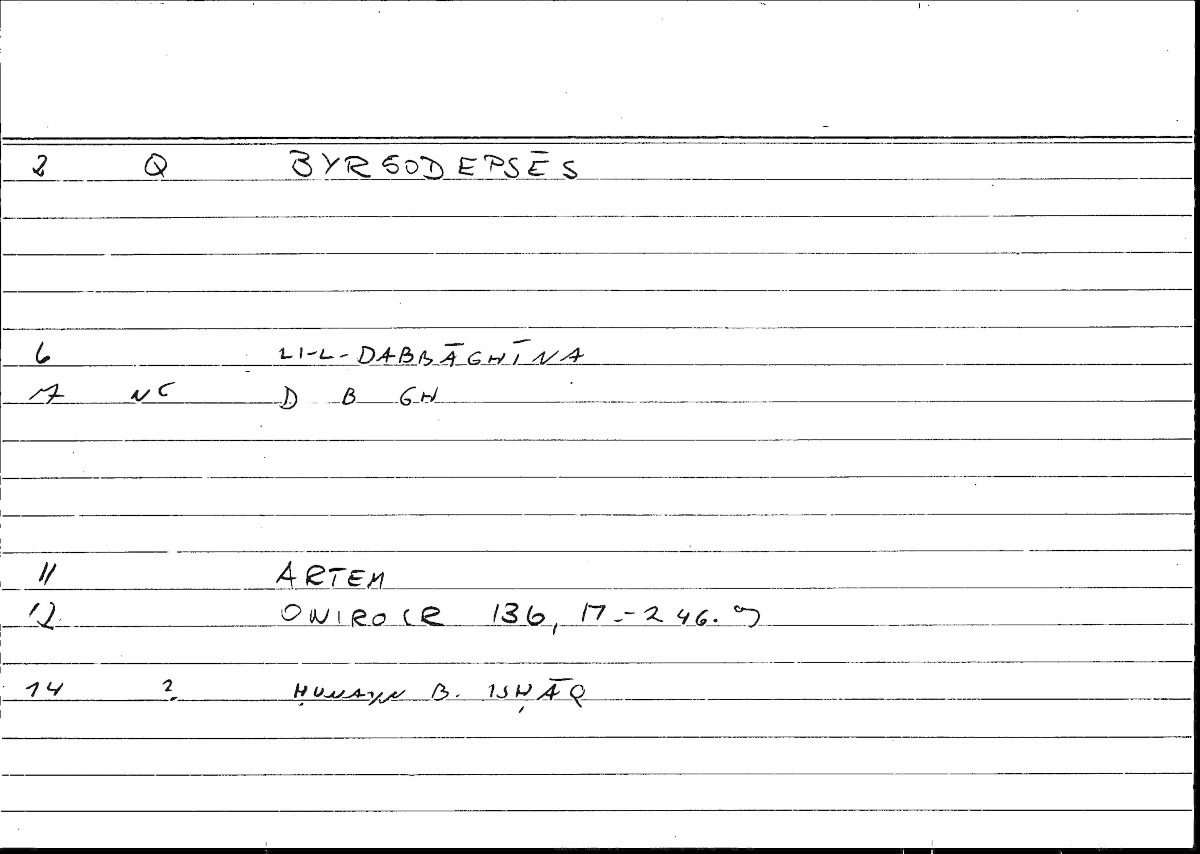 2 Q BYRSODEPSĒS
6 LI-L-DABBĀGHĪNA
7 NC D B GH
11 ARTEM
12 ONIROCR 136, 17.-246.9
14 ? ḤUNAYN B. ISḤĀQ